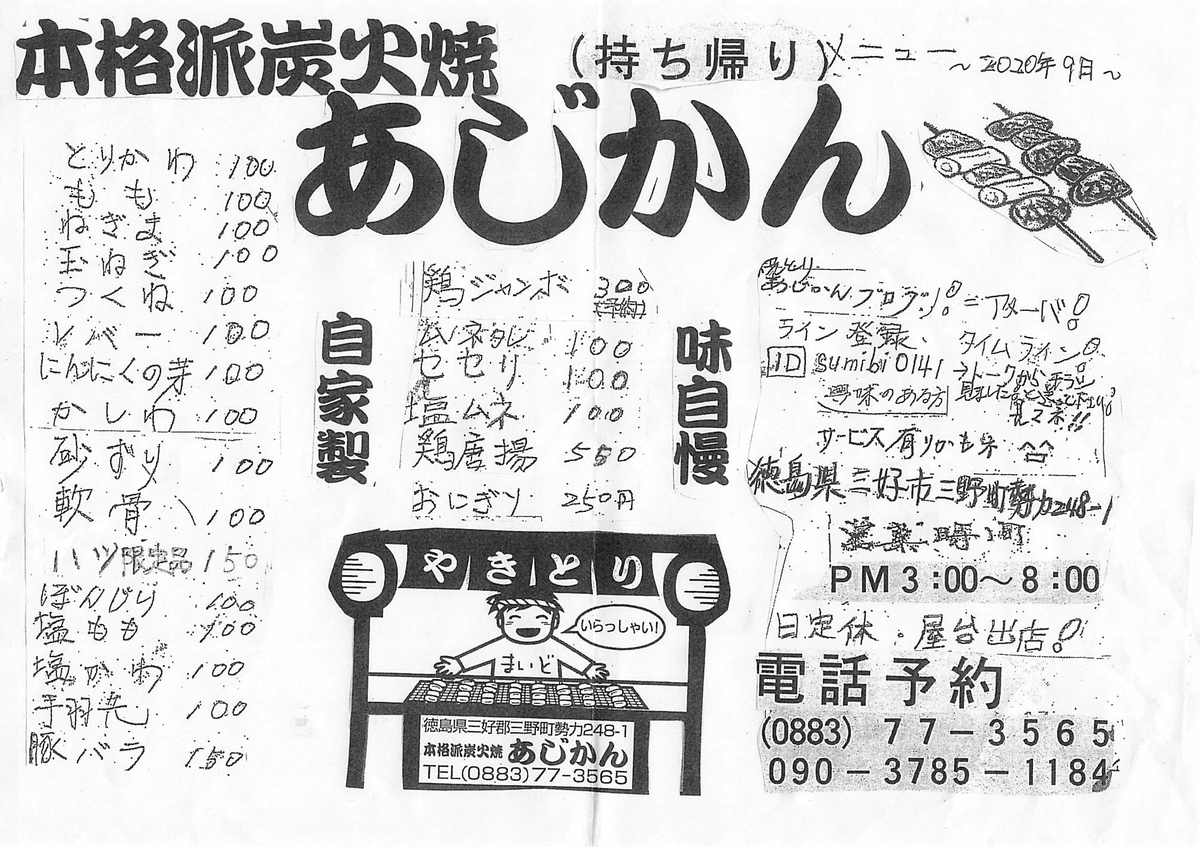 本格派炭火焼
(持ち帰り)メニュー ~2020年9月~
あじかん
とりかわ 100
もも 100
ねぎま 100
玉ねぎ 100
つくね 100
レバー 100
にんにくの芽 100
かしわ 100
砂ずり 100
軟骨 100
ハツ限定品 150
ぼんじり 100
塩もも 100
塩かわ 100
手羽先 100
豚バラ 150
自家製
鶏ジャンボ 300
(予約)
ムネタレ 100
セセリ 100
塩ムネ 100
鶏唐揚 550
おにぎり 250円
味自慢
やきとり
いらっしゃい!
まいど
徳島県三好郡三野町勢力248-1
本格派炭火焼 あじかん
TEL(0883)77-3565
あじかんブログ!
ライン登録、タイムライン!
ID sumibi0141 →トークから
興味のある方
サービス有りかも
徳島県三好市三野町勢力248-1
営業時間
PM3:00〜8:00
日定休・屋台出店!
電話予約
(0883) 77-3565
090-3785-1184